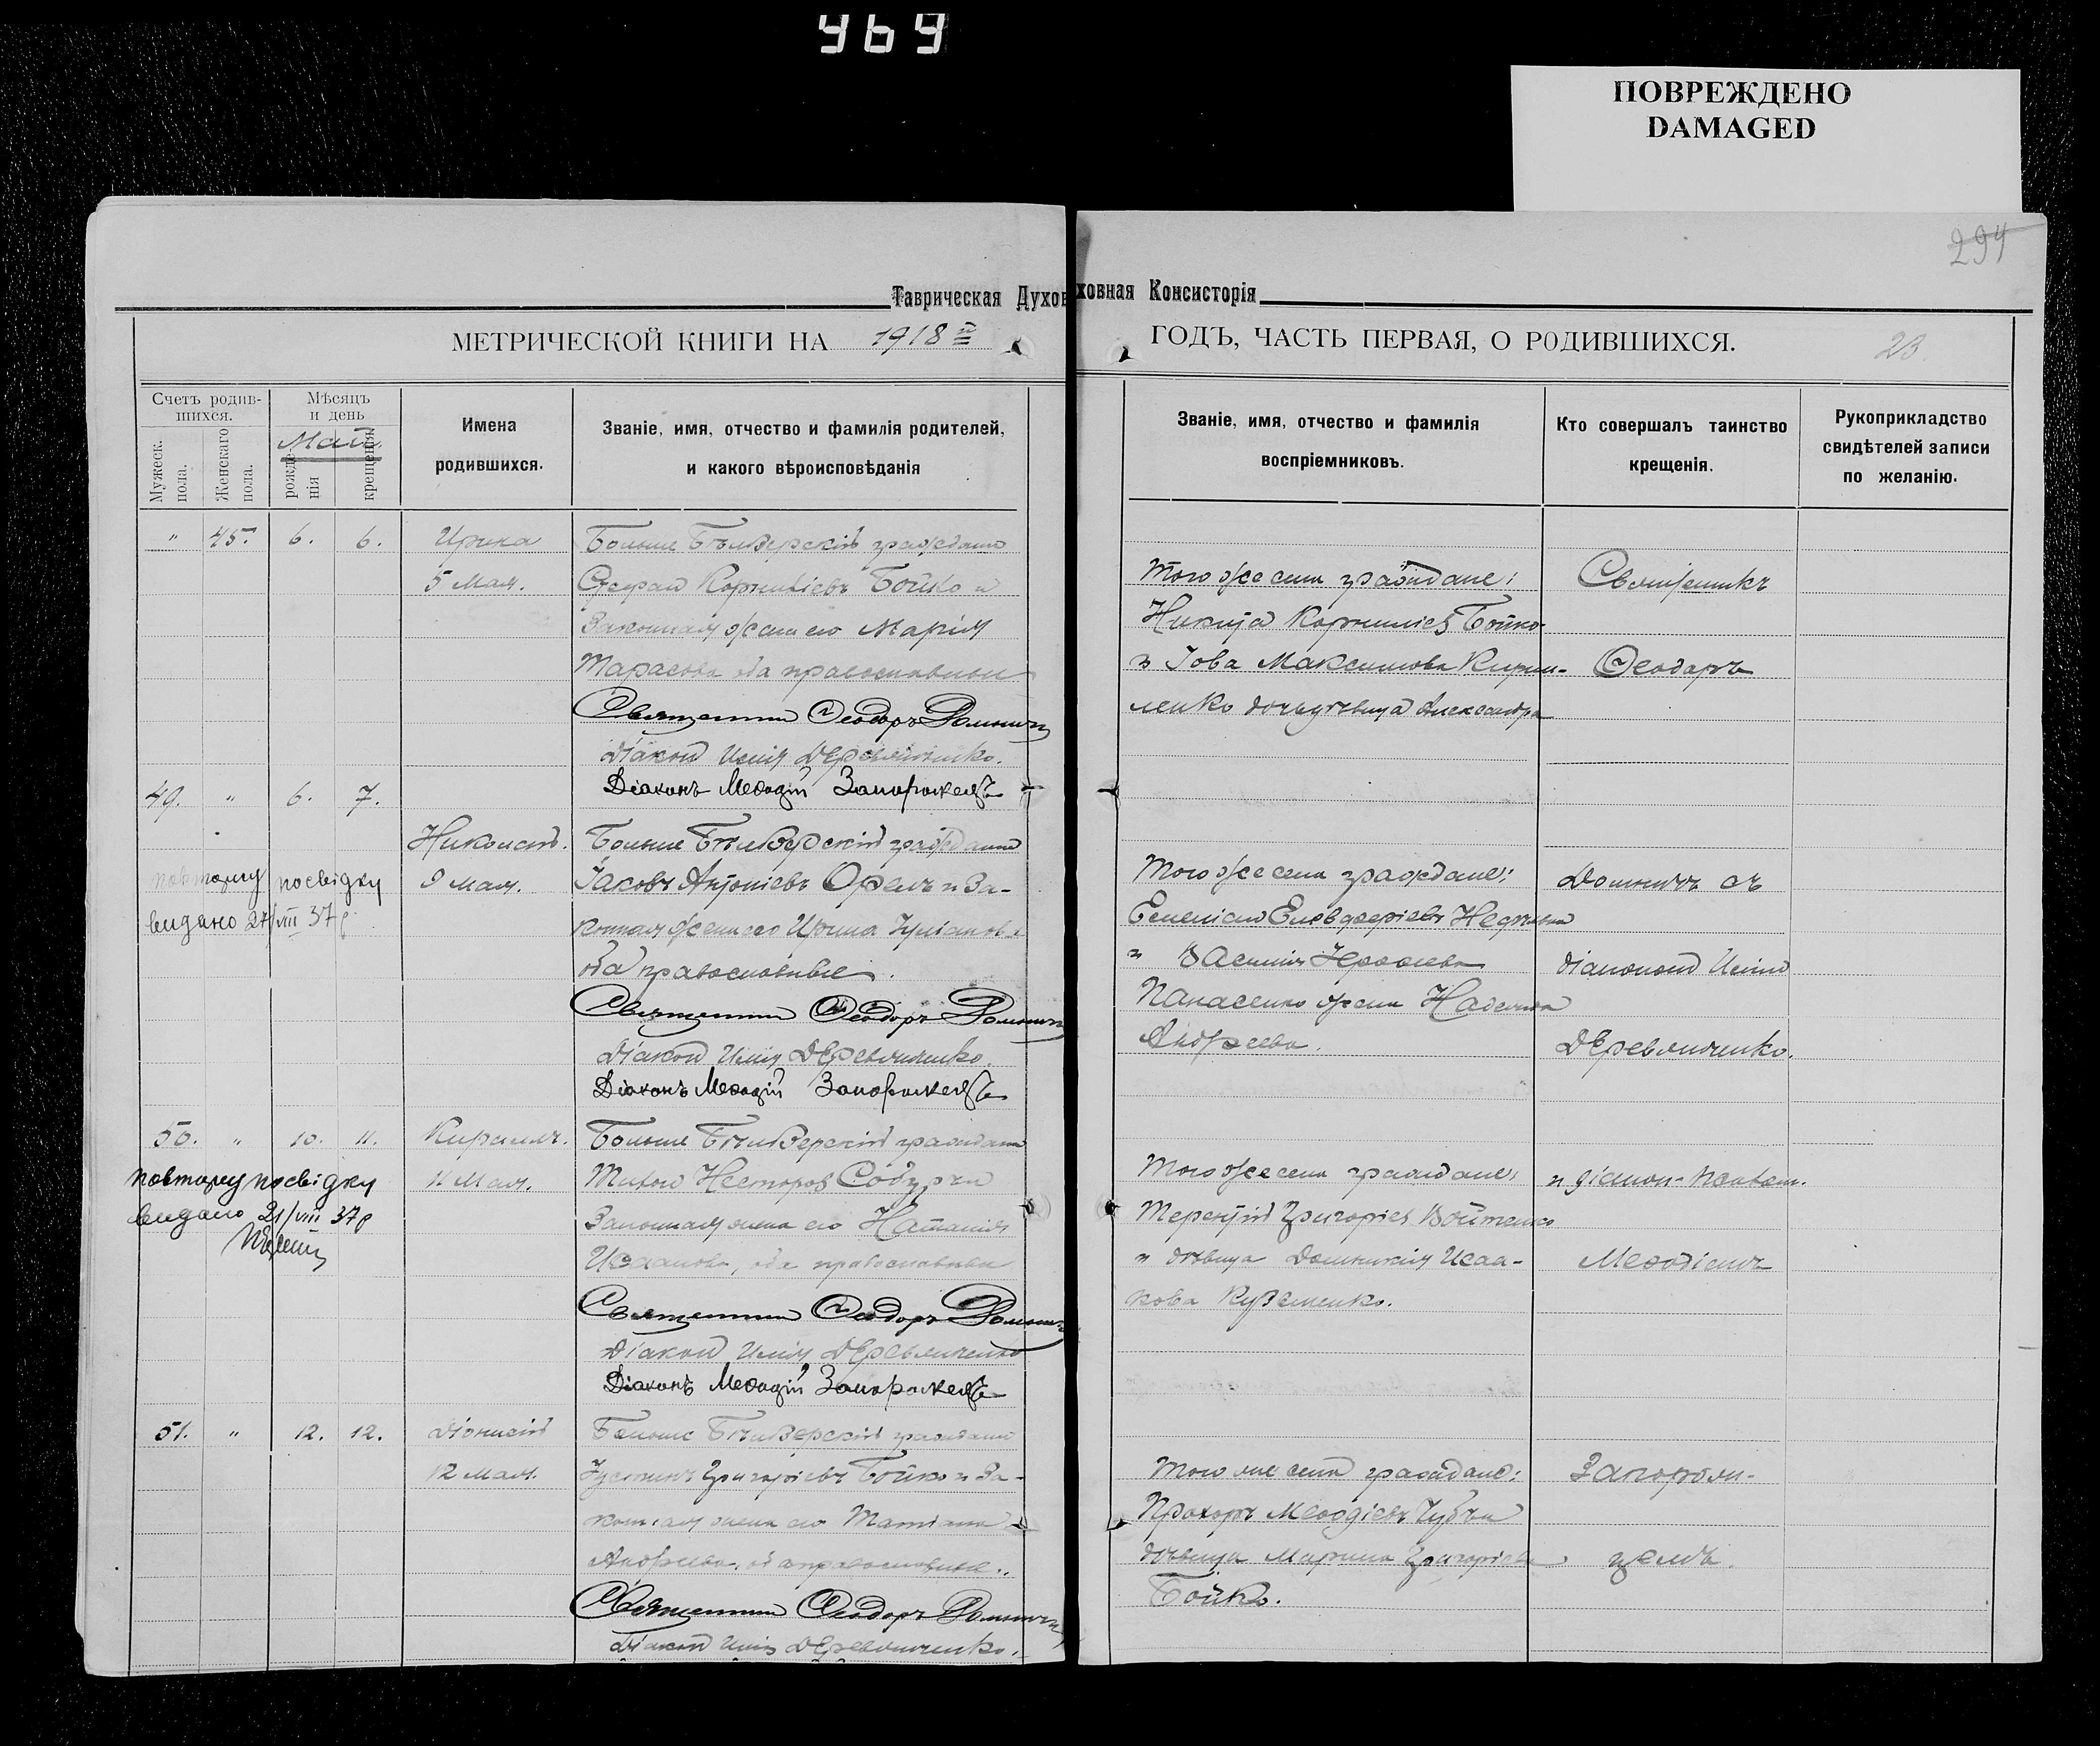 969
ПОВРЕЖДЕНО
DAMAGED
294
Таврическая Духовная Консисторія
МЕТРИЧЕСКОЙ КНИГИ НА 1918 ГОДЪ, ЧАСТЬ ПЕРВАЯ, О РОДИВШИХСЯ.
23.
Счетъ родив-
шихся.
Мужеск. пола.
Женскаго пола.
Мѣсяцъ
и день
Май
рожде-
нія
крещенія.
Имена
родившихся.
Званіе, имя, отчество и фамилія родителей,
и какого вѣроисповѣданія
Званіе, имя, отчество и фамилія
воспріемниковъ.
Кто совершалъ таинство
крещенія.
Рукоприкладство
свидѣтелей записи
по желанію.
" 45. 6. 6. Ирина
5 Мая.
Больше Бѣлзерскій гражданин
Стефан Корнилієвъ Бойко и
Законная жена его Марія
Тарасова оба православные
Священник Ѳеодоръ Домнич
Діакон Илія Деревянченко.
Діаконъ Меѳодій Запорожецъ
Того же села граждане:
Никита Корниліев Бойко
и Іова Максимова Кирил-
ленко дочь дѣвица Александра
Священникъ
Ѳеодоръ
49. " 6. 7.
Николай.
9 мая.
повторну посвідку
видано 27/VIII 37 р.
Больше Бѣлзерскій гражданин
Іаковъ Антоніевъ Орелъ и За-
конная жена его Ирина
оба православные.
Священник Ѳеодоръ Домнич
Діакон Илія Деревянченко.
Діаконъ Меѳодій Запорожецъ
Того же села граждане:
и Василия
Панасенко жена
Андреева.
Домничъ съ
діаконом Илією
Деревянченко.
50. " 10. 11. Кириллъ.
11 Мая.
повторну посвідку
видано 21/VIII 37 р
Больше Бѣлзерскій гражданин
Тихон Несторов
Законная жена его Наталія
Исаакова, оба православные
Священник Ѳеодоръ Домнич
Діакон Илія Деревянченко
Діаконъ Меѳодій Запорожецъ
Того же села граждане:
Терентій Григоріев Войтенко
и дѣвица Домникия Исаа-
кова Кузьменко.
Меѳодіемъ
51. " 12. 12. Діонисій
12 мая.
Больше Бѣлзерскій гражданин
Іустинъ Григоріевъ Бойко и За-
конная жена его Татіана
Андреева, оба православные.
Священник Ѳеодоръ Домнич
Діакон Илія Деревянченко.
Того же села граждане:
Прохоръ Меѳодіевъ
дѣвица Марина Григоріева
Бойко.
Запорож-
цемъ.